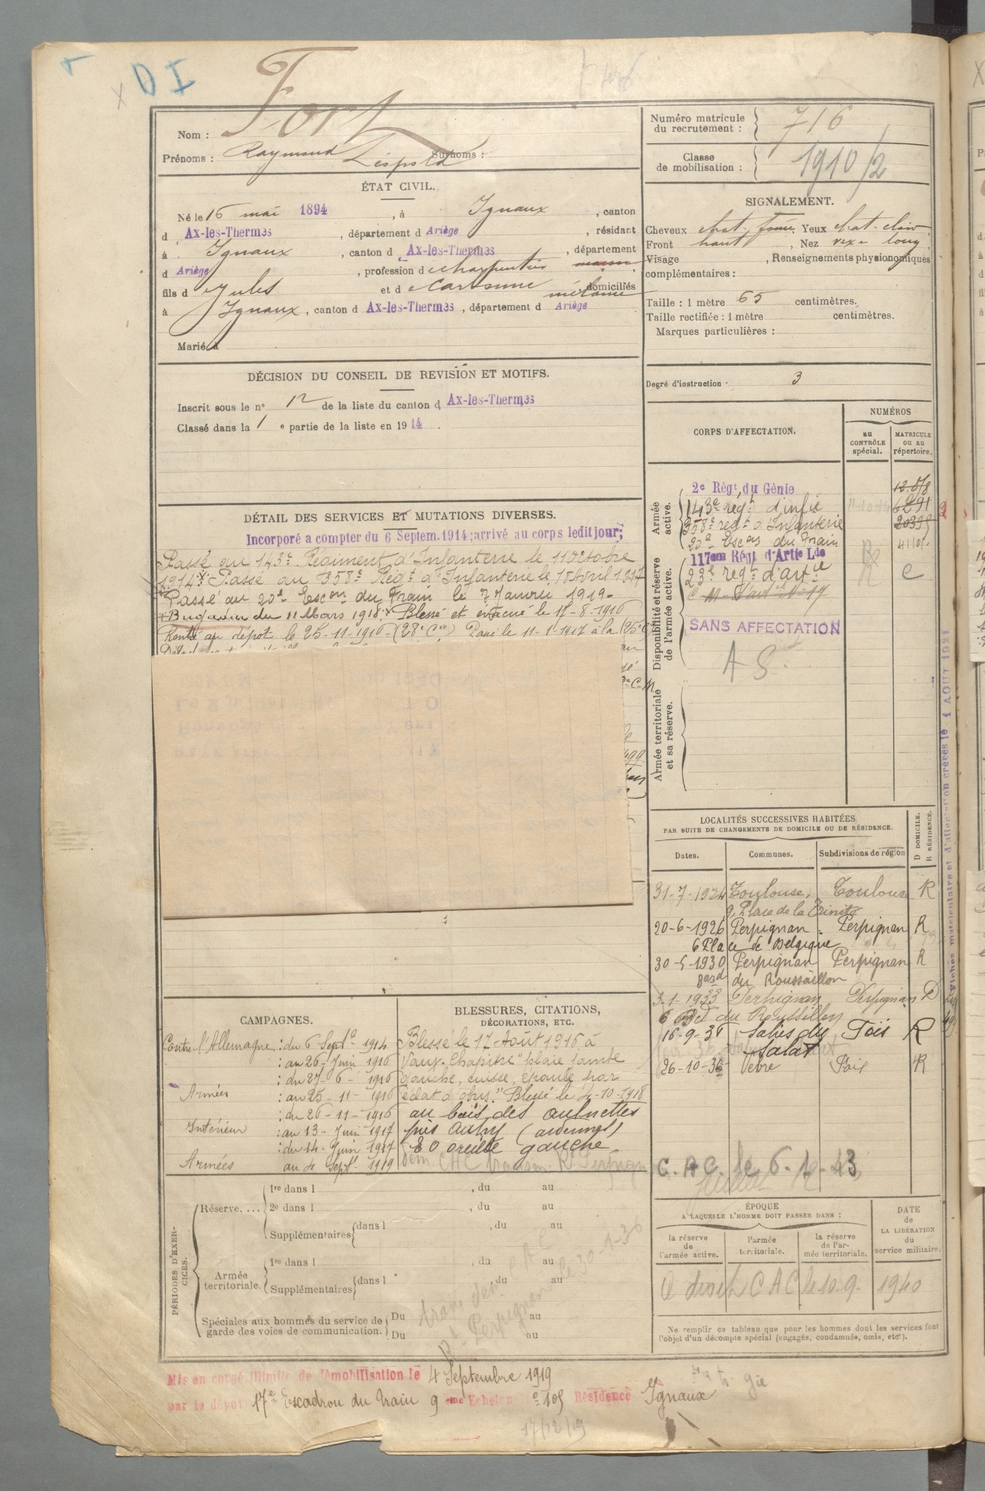 D I
Fort
Nom :
Prénoms : Raymond Léopold Surnoms :
ÉTAT CIVIL.
Né le 16 mai 1894, à Ignaux, canton
d Ax-les-Thermes, département d Ariège, résidant
à Ignaux, canton d Ax-les-Thermes, département
d Ariège, profession d charpentier
fils d Jules et d domiciliés
à Ignaux, canton d Ax-les-Thermes, département d Ariège
Marié à
DÉCISION DU CONSEIL DE REVISION ET MOTIFS.
Inscrit sous le n° 12 de la liste du canton d Ax-les-Thermes
Classé dans la 1 e partie de la liste en 1914.
DÉTAIL DES SERVICES ET MUTATIONS DIVERSES.
Incorporé a compter du 6 Septem. 1914; arrivé au corps ledit jour;
Passé au 143e Régiment d'Infanterie le 11 octobre
1914. Passé au 358e Régt d'Infanterie le 15 avril 1917
Passé au 20e Escon du Train le 7 Janvier 1919.
Brigadier du 11 Mars 1918. Blessé et évacué le 18-8-1916
Rentré au dépôt le 25-11-1916 (28e Cie) Passé le 11-1-1917 à la
Numéro matricule du recrutement : 716
Classe de mobilisation : 1910/2
SIGNALEMENT.
Cheveux chat. foncé Yeux chat. clair
Front haut, Nez long
Visage , Renseignements physionomiques
complémentaires :
Taille : 1 mètre 65 centimètres.
Taille rectifiée : 1 mètre centimètres.
Marques particulières :
Degré d'instruction : 3
CORPS D'AFFECTATION.
NUMÉROS
au contrôle spécial.
matricule ou au répertoire.
Armée active.
2e Régt du Génie
143e régt d'infie 6291
358e régt d'Infanterie
20e Escon du Train
Disponibilité et réserve de l'armée active.
117eme Régt d'Artie Lde
23e régt d'artie
SANS AFFECTATION
A S.
Armée territoriale et sa réserve.
LOCALITÉS SUCCESSIVES HABITÉES
PAR SUITE DE CHANGEMENTS DE DOMICILE OU DE RÉSIDENCE.
Dates. Communes. Subdivisions de région
D DOMICILE. R RÉSIDENCE.
31-7-1924 Toulouse, Toulouse R
9 Place de la Trinité
20-6-1926 Perpignan Perpignan R
6 Place de Belgique
30-5-1930 Perpignan Perpignan R
du Roussillon
3-1-1933 Perpignan Perpignan D
6 Bd du Roussillon
Salies du Salat Foix R
26-10-36 Vèbre Foix R
C.A.C. le 6-1-43
CAMPAGNES.
Contre l'Allemagne : du 6 Septe 1914
au 26 Juin 1916
du 27-6-1916
Armées : au 25-11-1916
du 26-11-1916
Intérieur : au 13 Juin 1917
du 14 Juin 1917
Armées au 4 Septe 1919
BLESSURES, CITATIONS,
DÉCORATIONS, ETC.
Blessé le 17 Août 1916, à
"Vaux-Chapitre" plaie jambe
gauche, cuisse, épaule par
éclat d'obus. Blessé le 4-10-1918
au bois des aulnettes
près Autry (ardennes)
E O oreille gauche
PÉRIODES D'EXERCICES.
Réserve.... 1re dans l , du au
2e dans l , du au
Supplémentaires dans l , du au
Armée territoriale. 1re dans l , du au
Supplémentaires dans l , du au
Spéciales aux hommes du service de Du au
garde des voies de communication. Du au
ÉPOQUE
A LAQUELLE L'HOMME DOIT PASSER DANS :
la réserve de l'armée active.
l'armée territoriale.
la réserve de l'armée territoriale.
DATE de LA LIBÉRATION du service militaire.
CAC le 10.9. 1940
Ne remplir ce tableau que pour les hommes dont les services font
l'objet d'un décompte spécial (engagés, condamnés, omis, etc.).
Mis en congé illimité de démobilisation le 4 Septembre 1919
par le dépôt 17e Escadron du Train 9 eme Echelon n° 105 Résidence Ignaux
17/12/19